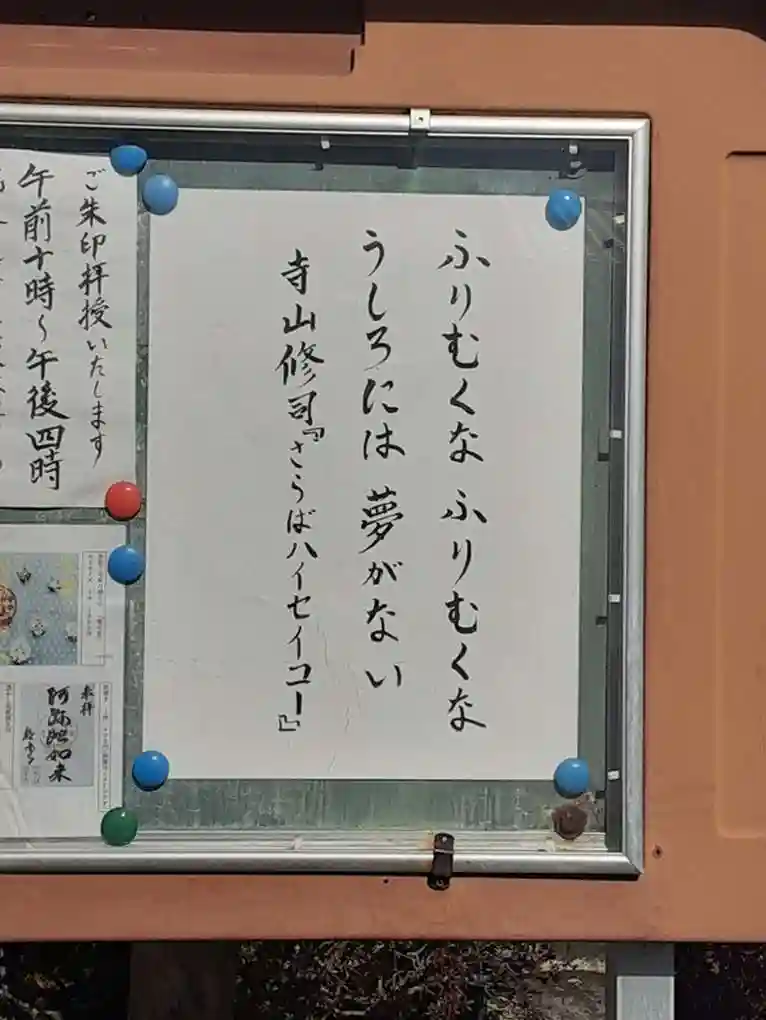 ふりむくな ふりむくな
うしろには 夢がない
寺山修司『さらばハイセイコー』
ご朱印拝授いたします
午前十時~午後四時
奉拝
阿弥陀如来